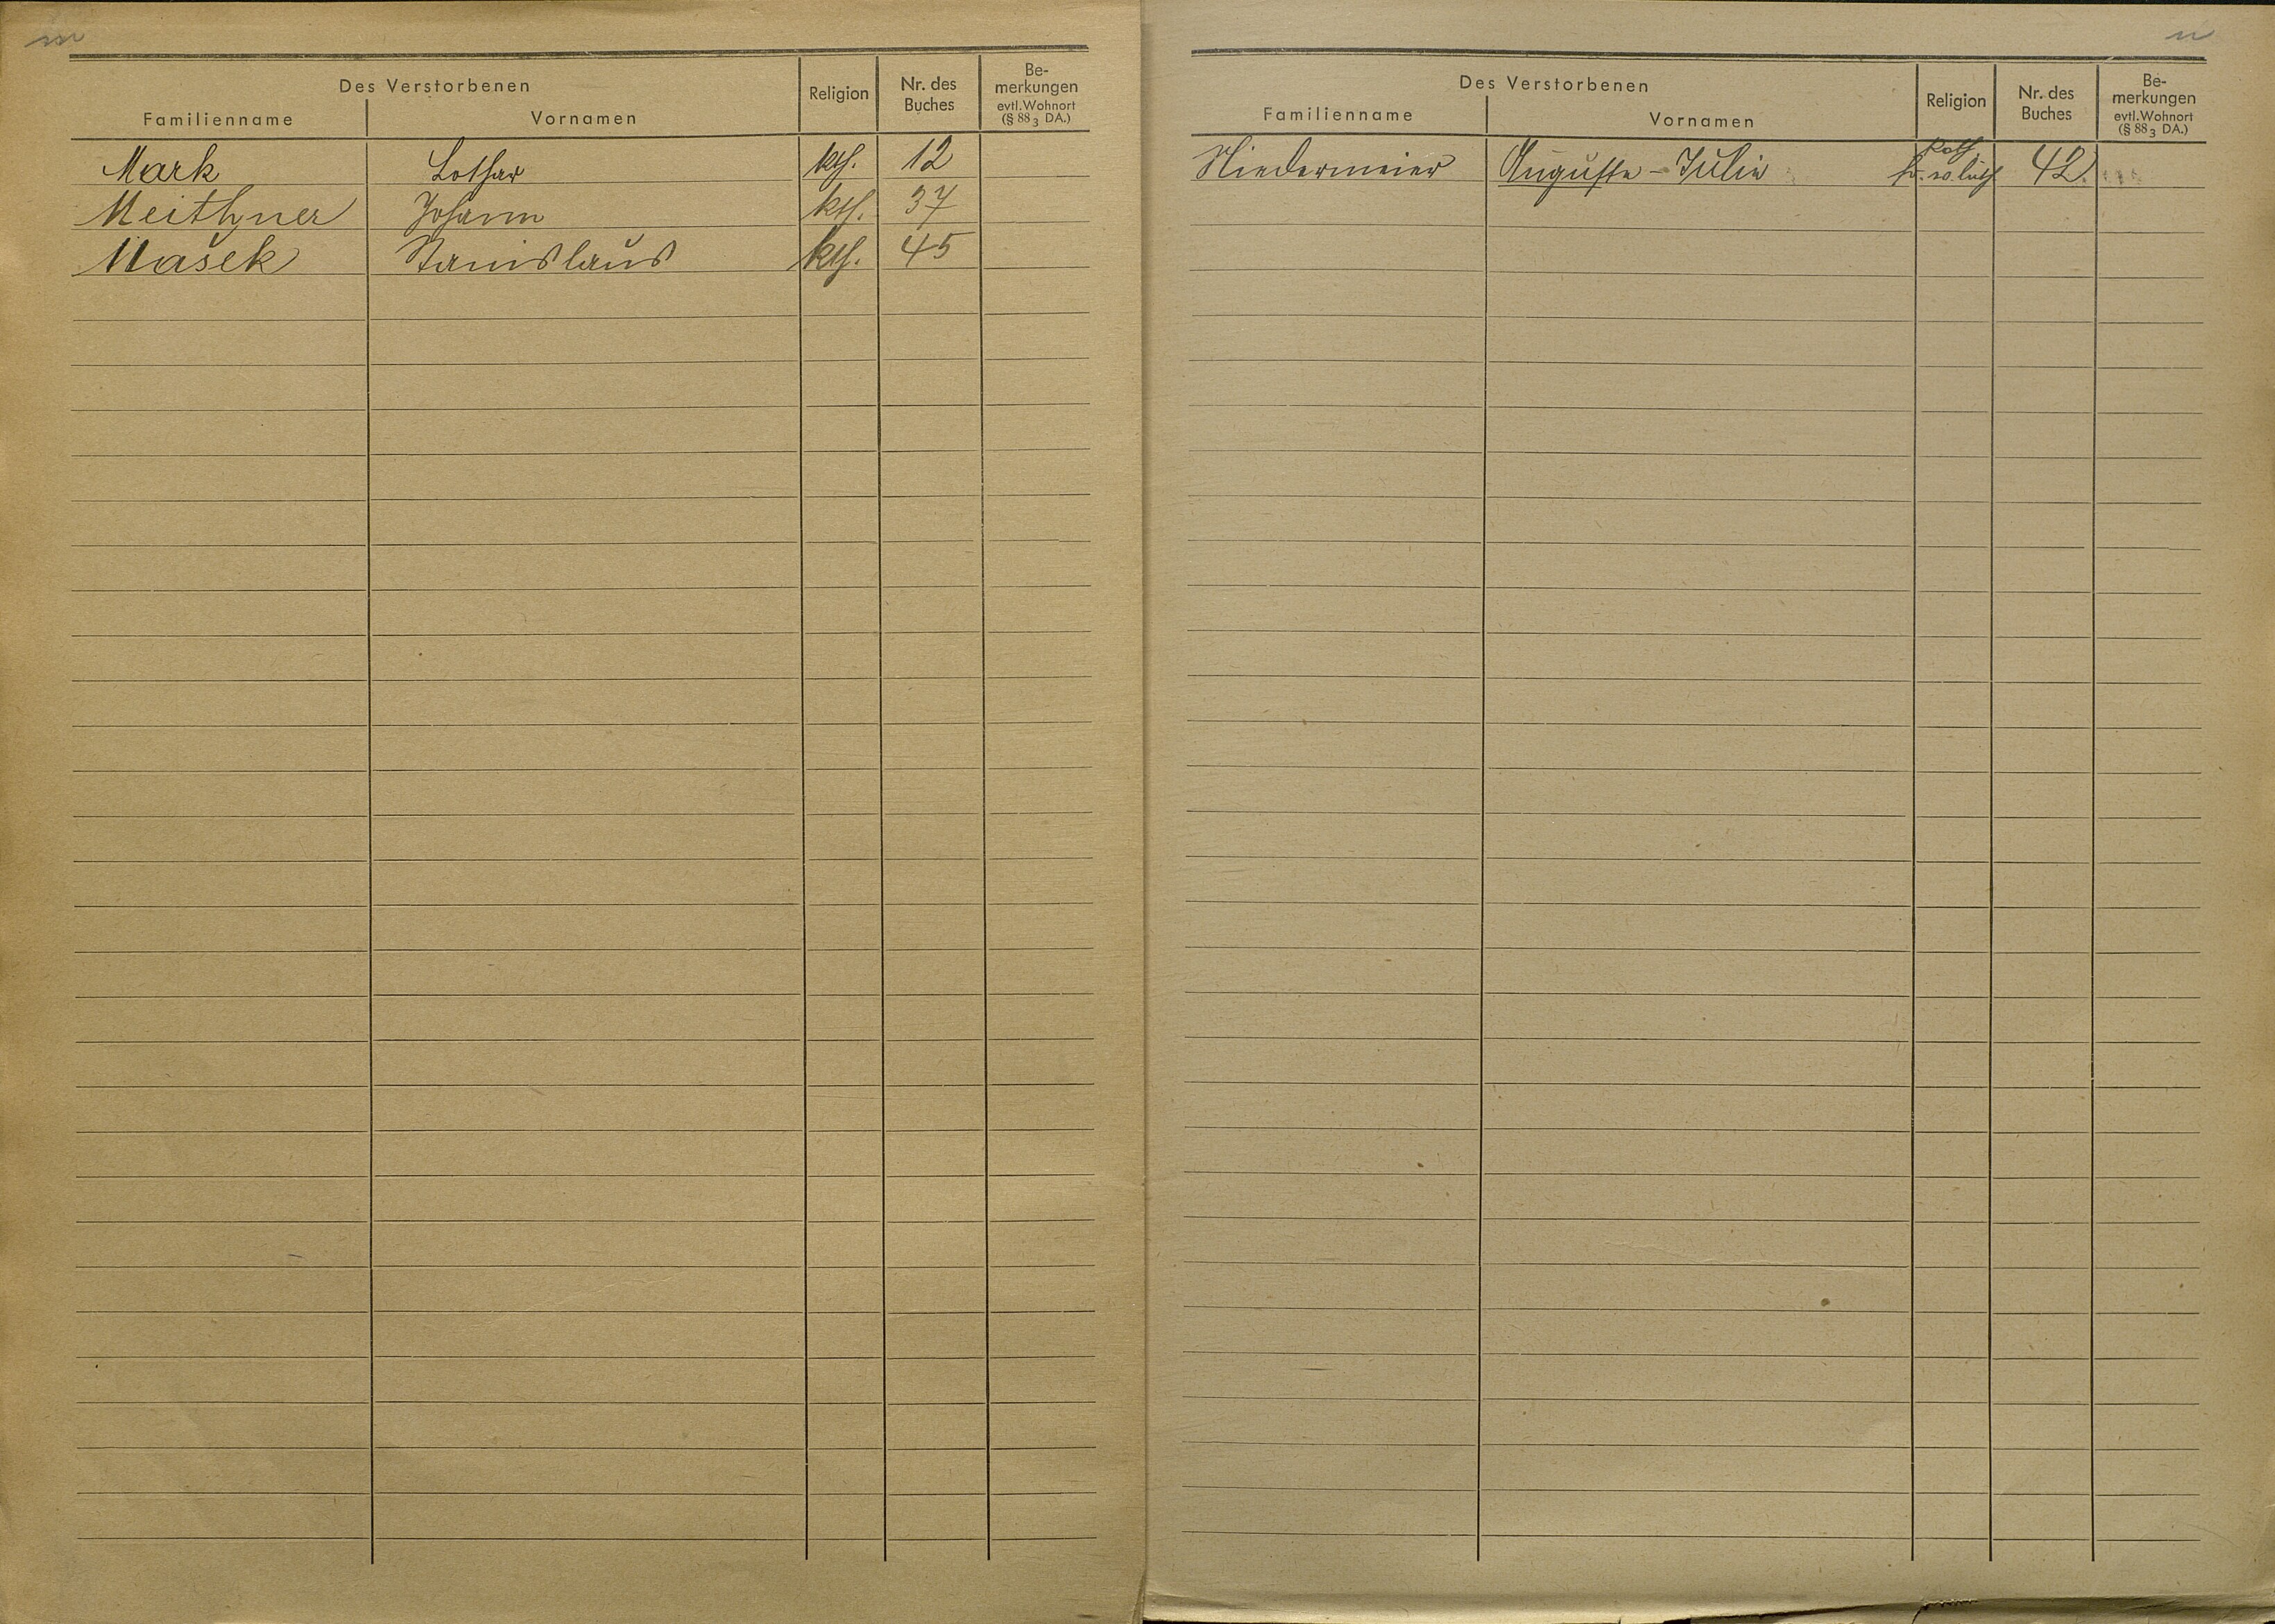 m
Des Verstorbenen
Familienname Vornamen Religion Nr. des Buches Be-merkungen evtl. Wohnort (§ 88 3 DA.)
Mark Lothar kth. 12
Meithner Johann kth. 37
Mašek Stanislaus kth. 45
n
Des Verstorbenen
Familienname Vornamen Religion Nr. des Buches Be-merkungen evtl. Wohnort (§ 88 3 DA.)
Kath
Niedermeier Auguste - Julie 42